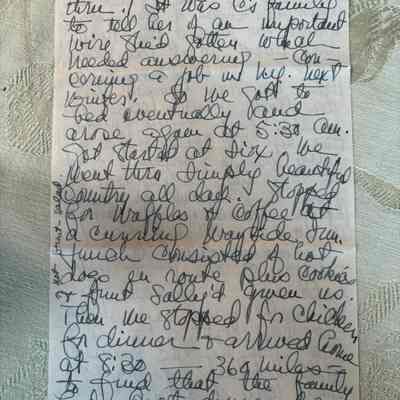 thru! It was C's family
to tell her of an important
wire she'd gotten which
needed answering – con-
cerning a job in N.Y. next
winter. So we got to
bed eventually and
arose again at 5:30 am.
Got started at six. We
went thru simply beautiful
country all day. Stopped
for waffles & coffee at
a cunning Wayside Inn.
Lunch consisted of hot
dogs en route plus cookies
& fruit Sally'd given us.
Then we stopped for chicken
for dinner & arrived home
at 8:30 — 369 miles –
to find that the family